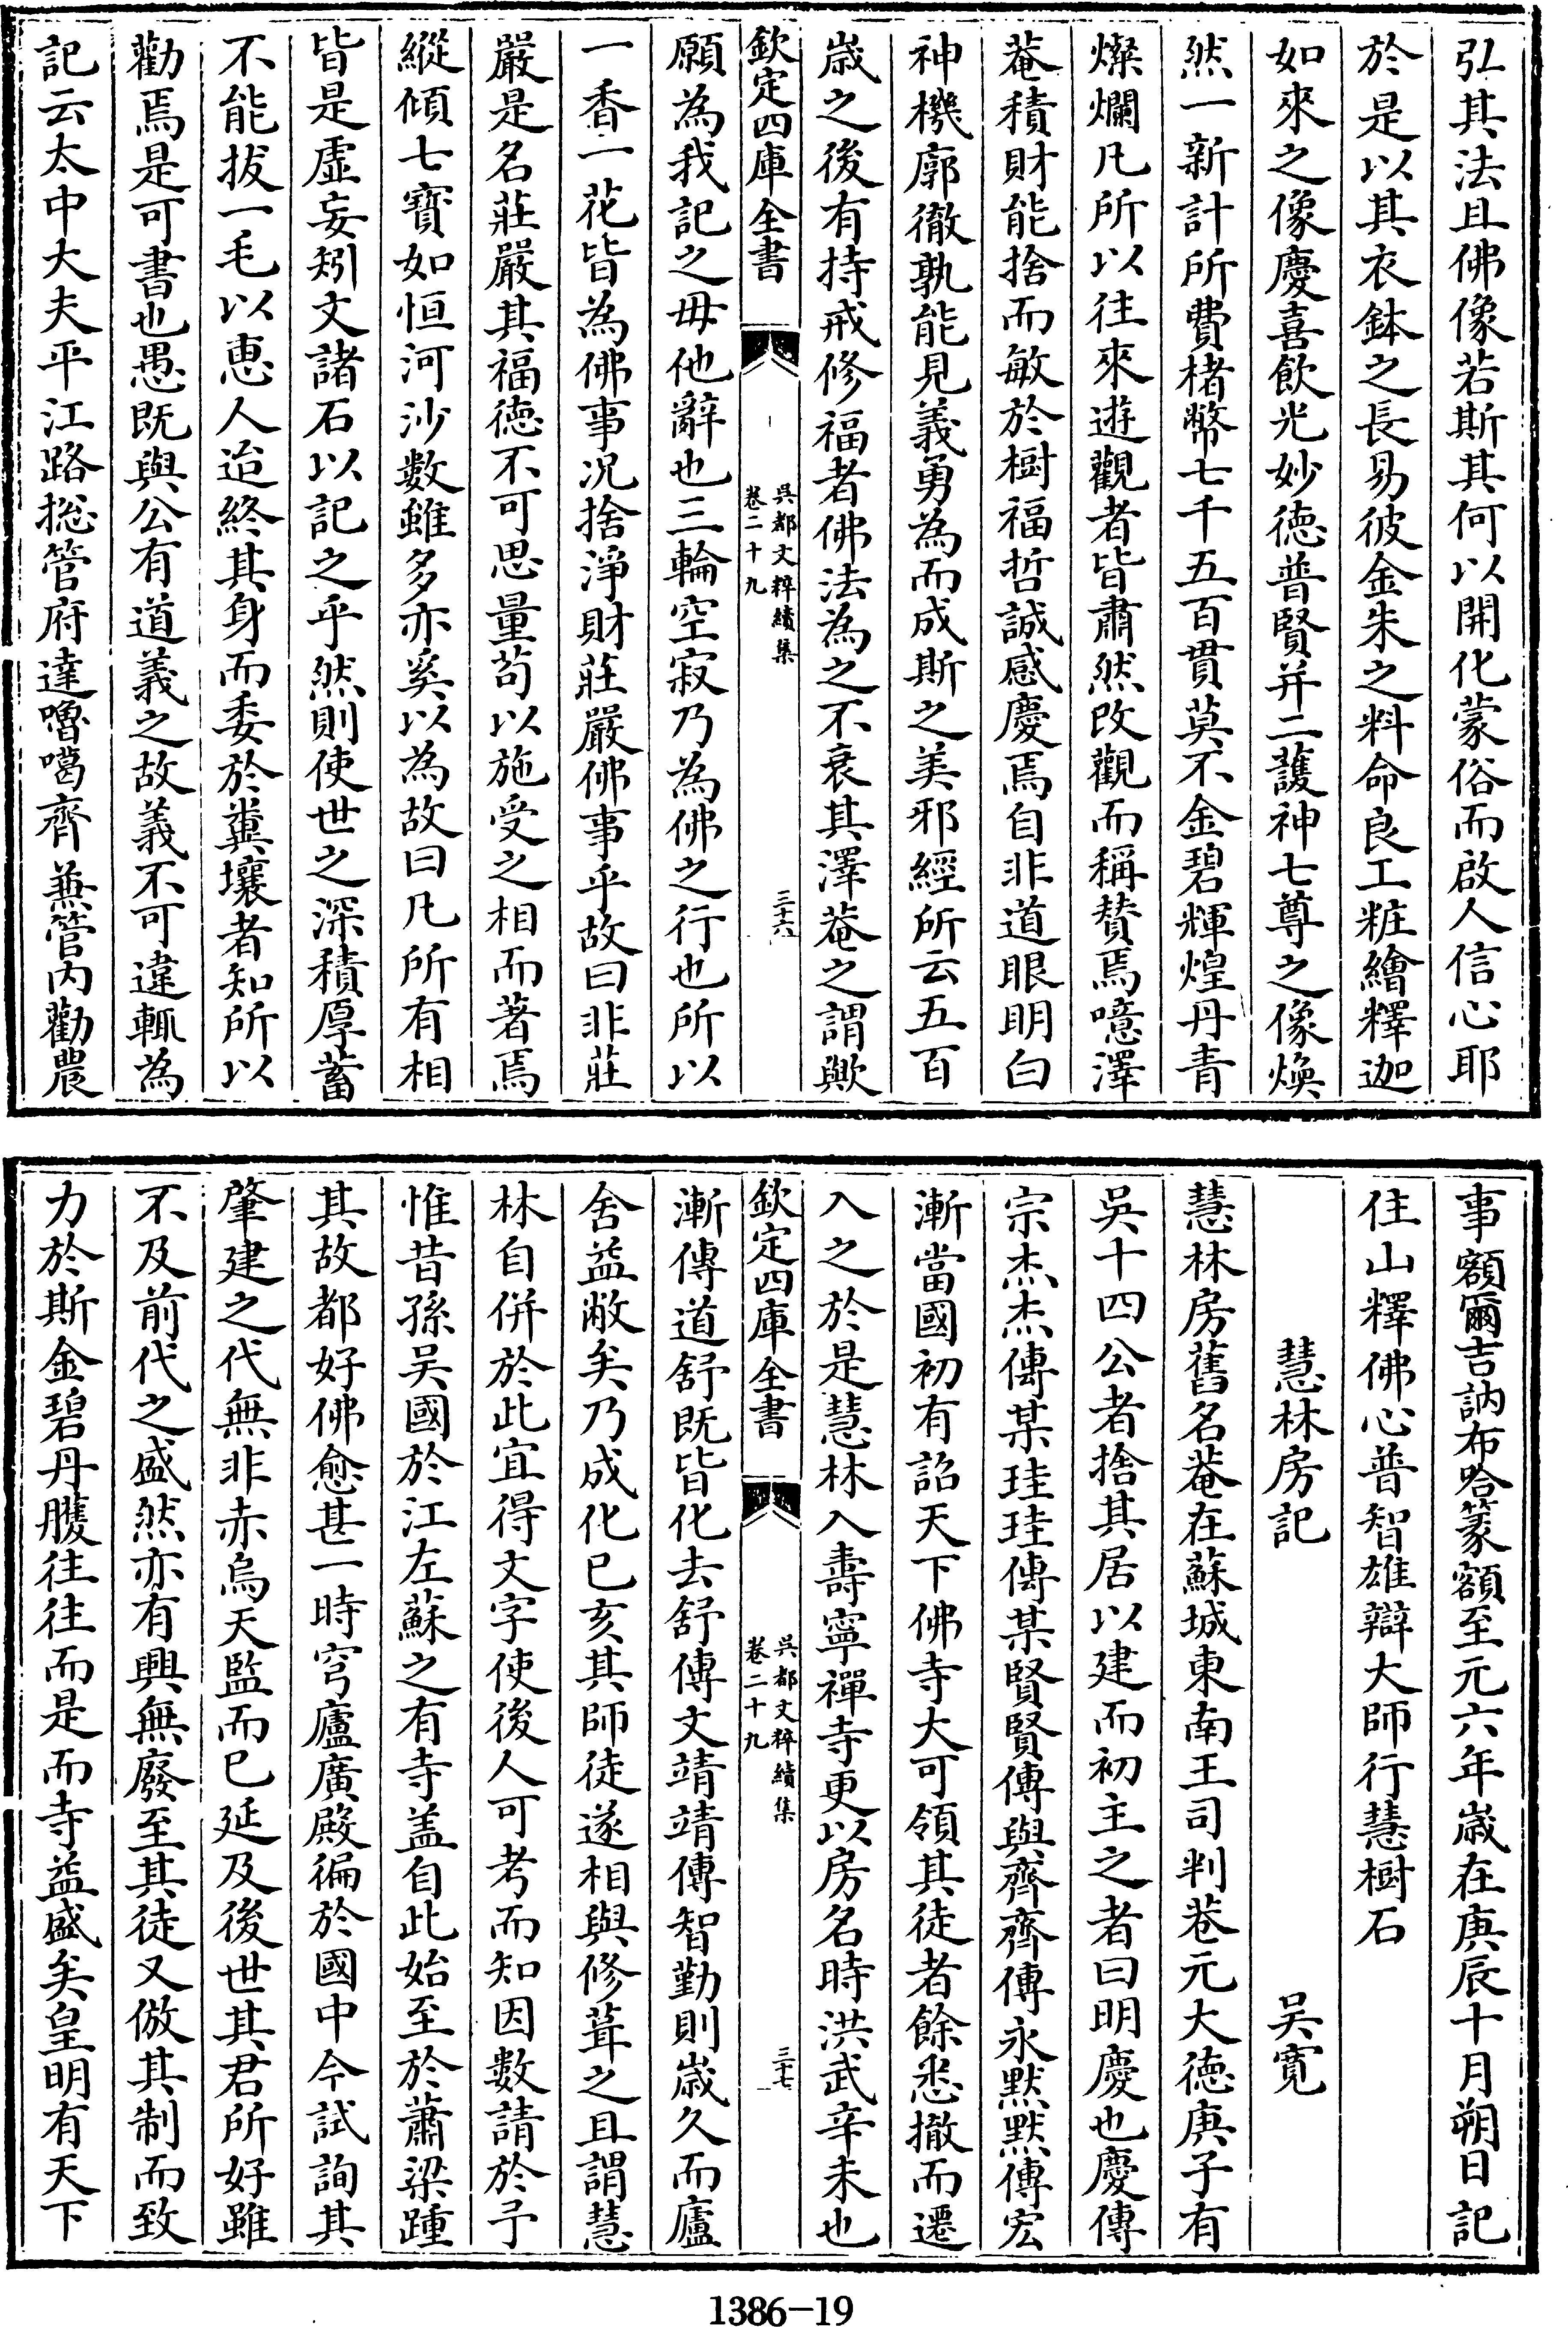 弘其法且佛像若斯其何以開化蒙俗而啟人信心耶
於是以其衣鉢之長易彼金朱之料命良工粧繪釋迦
如來之像慶喜飲光妙德普賢并二護神七尊之像煥
然一新計所費楮幣七千五百貫莫不金碧輝煌丹青
燦爛凡所以往來遊觀者皆肅然改觀而稱贊焉噫澤
菴積財能捨而敏於樹福哲誠感慶焉自非道眼明白
神機廓徹孰能見義勇為而成斯之美邪經所云五百
歲之後有持戒修福者佛法為之不衰其澤菴之謂歟
欽定四庫全書
吳都文粹續集
卷二十九
三十六
願為我記之毋他辭也三輪空寂乃為佛之行也所以
一香一花皆為佛事況捨淨財莊嚴佛事乎故曰非莊
嚴是名莊嚴其福德不可思量苟以施受之相而著焉
縱傾七寶如恒河沙數雖多亦奚以為故曰凡所有相
皆是虛妄矧文諸石以記之乎然則使世之深積厚蓄
不能拔一毛以惠人迨終其身而委於糞壤者知所以
勸焉是可書也愚既與公有道義之故義不可違輒為
記云太中大夫平江路總管府達嚕噶齊兼管內勸農
事額爾吉訥布哈篆額至元六年歲在庚辰十月朔日記
住山釋佛心普智雄辯大師行慧樹石
慧林房記 吳寬
慧林房舊名菴在蘇城東南王司判巷元大德庚子有
吳十四公者捨其居以建而初主之者曰明慶也慶傳
宗杰杰傳某珪珪傳某賢賢傳與齊齊傳永默默傳宏
漸當國初有詔天下佛寺大可領其徒者餘悉撤而遷
入之於是慧林入壽寧禪寺更以房名時洪武辛未也
欽定四庫全書
吳都文粹續集
卷二十九
三十七
漸傳道舒既皆化去舒傳文靖靖傳智勤則歲久而廬
舍益敝矣乃成化己亥其師徒遂相與修葺之且謂慧
林自併於此宜得文字使後人可考而知因數請於予
惟昔孫吳國於江左蘇之有寺盖自此始至於蕭梁踵
其故都好佛愈甚一時穹廬廣殿徧於國中今試詢其
肇建之代無非赤烏天監而已延及後世其君所好雖
不及前代之盛然亦有興無廢至其徒又倣其制而致
力於斯金碧丹雘往往而是而寺益盛矣皇明有天下
1386-19